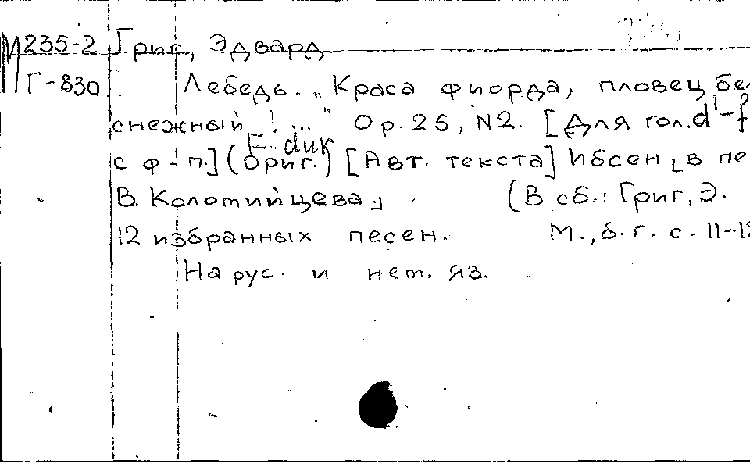 М235-2 Григ, Эдвард
Г-830 Лебедь. „Краса фиорда, пловец бе
снежный!..." Ор. 25, N2. [Для гол. d'-f
F. дик
с ф-п.] (Ориг.) [Авт. текста] Ибсен [в пе
В. Коломийцева] (В сб.: Григ, Э.
12 избранных песен. М., б. г. с. 11-1
На рус. и нем. яз.